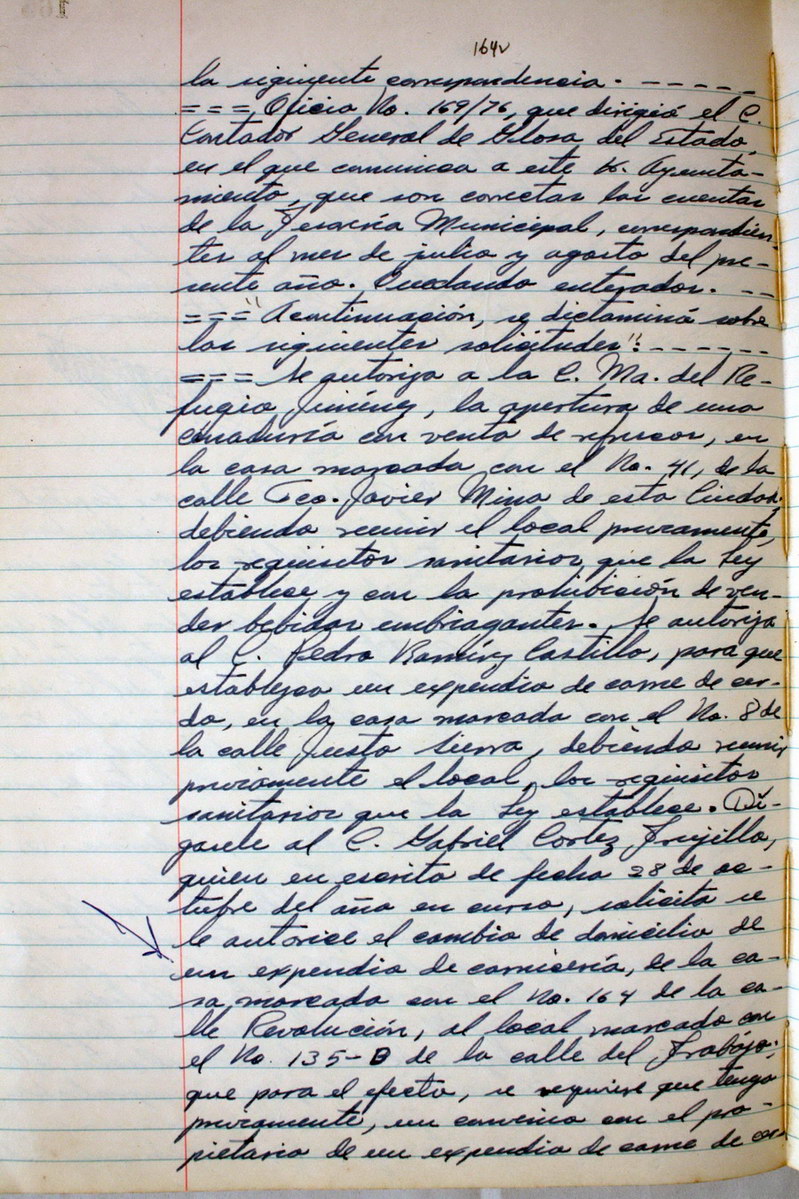 164v
la siguiente correspondencia. - - - - - -
= = = Oficio No. 169/76, que dirigió el C.
Contador General de Glosa del Estado,
en el que comunica a este H. Ayunta-
miento, que son correctas las cuentas
de la Tesorería Municipal, correspondien-
tes al mes de julio y agosto del pre-
sente año. Quedando enterados. - -
= = = "Acontinuación, se dictaminó sobre
las siguientes solicitudes": - - - - - -
= = = Se autoriza a la C. Ma. del Re-
fugio Jiménez, la apertura de una
cenaduría con venta de refrescos, en
la casa marcada con el No. 41, de la
calle Fco. Javier Mina de esta Ciudad,
debiendo reunir el local previamente,
los requisitos sanitarios que la Ley
establece y con la prohibición de ven-
der bebidas embriagantes. Se autoriza
al C. Pedro Ramírez Castillo, para que
establezca un expendio de carne de cer-
do, en la casa marcada con el No. 8 de
la calle Justo Sierra, debiendo reunir
previamente el local, los requisitos
sanitarios que la Ley establece. Dí-
gasele al C. Gabriel Cortez Trujillo,
quien en escrito de fecha 28 de oc-
tubre del año en curso, solicita se
le autorice el cambio de domicilio de
un expendio de carnicería, de la ca-
sa marcada con el No. 164 de la ca-
lle Revolución, al local marcado con
el No. 135-B de la calle del Trabajo;
que para el efecto, se requiere que tenga
previamente, un convenio con el pro-
pietario de un expendio de carne de cer-